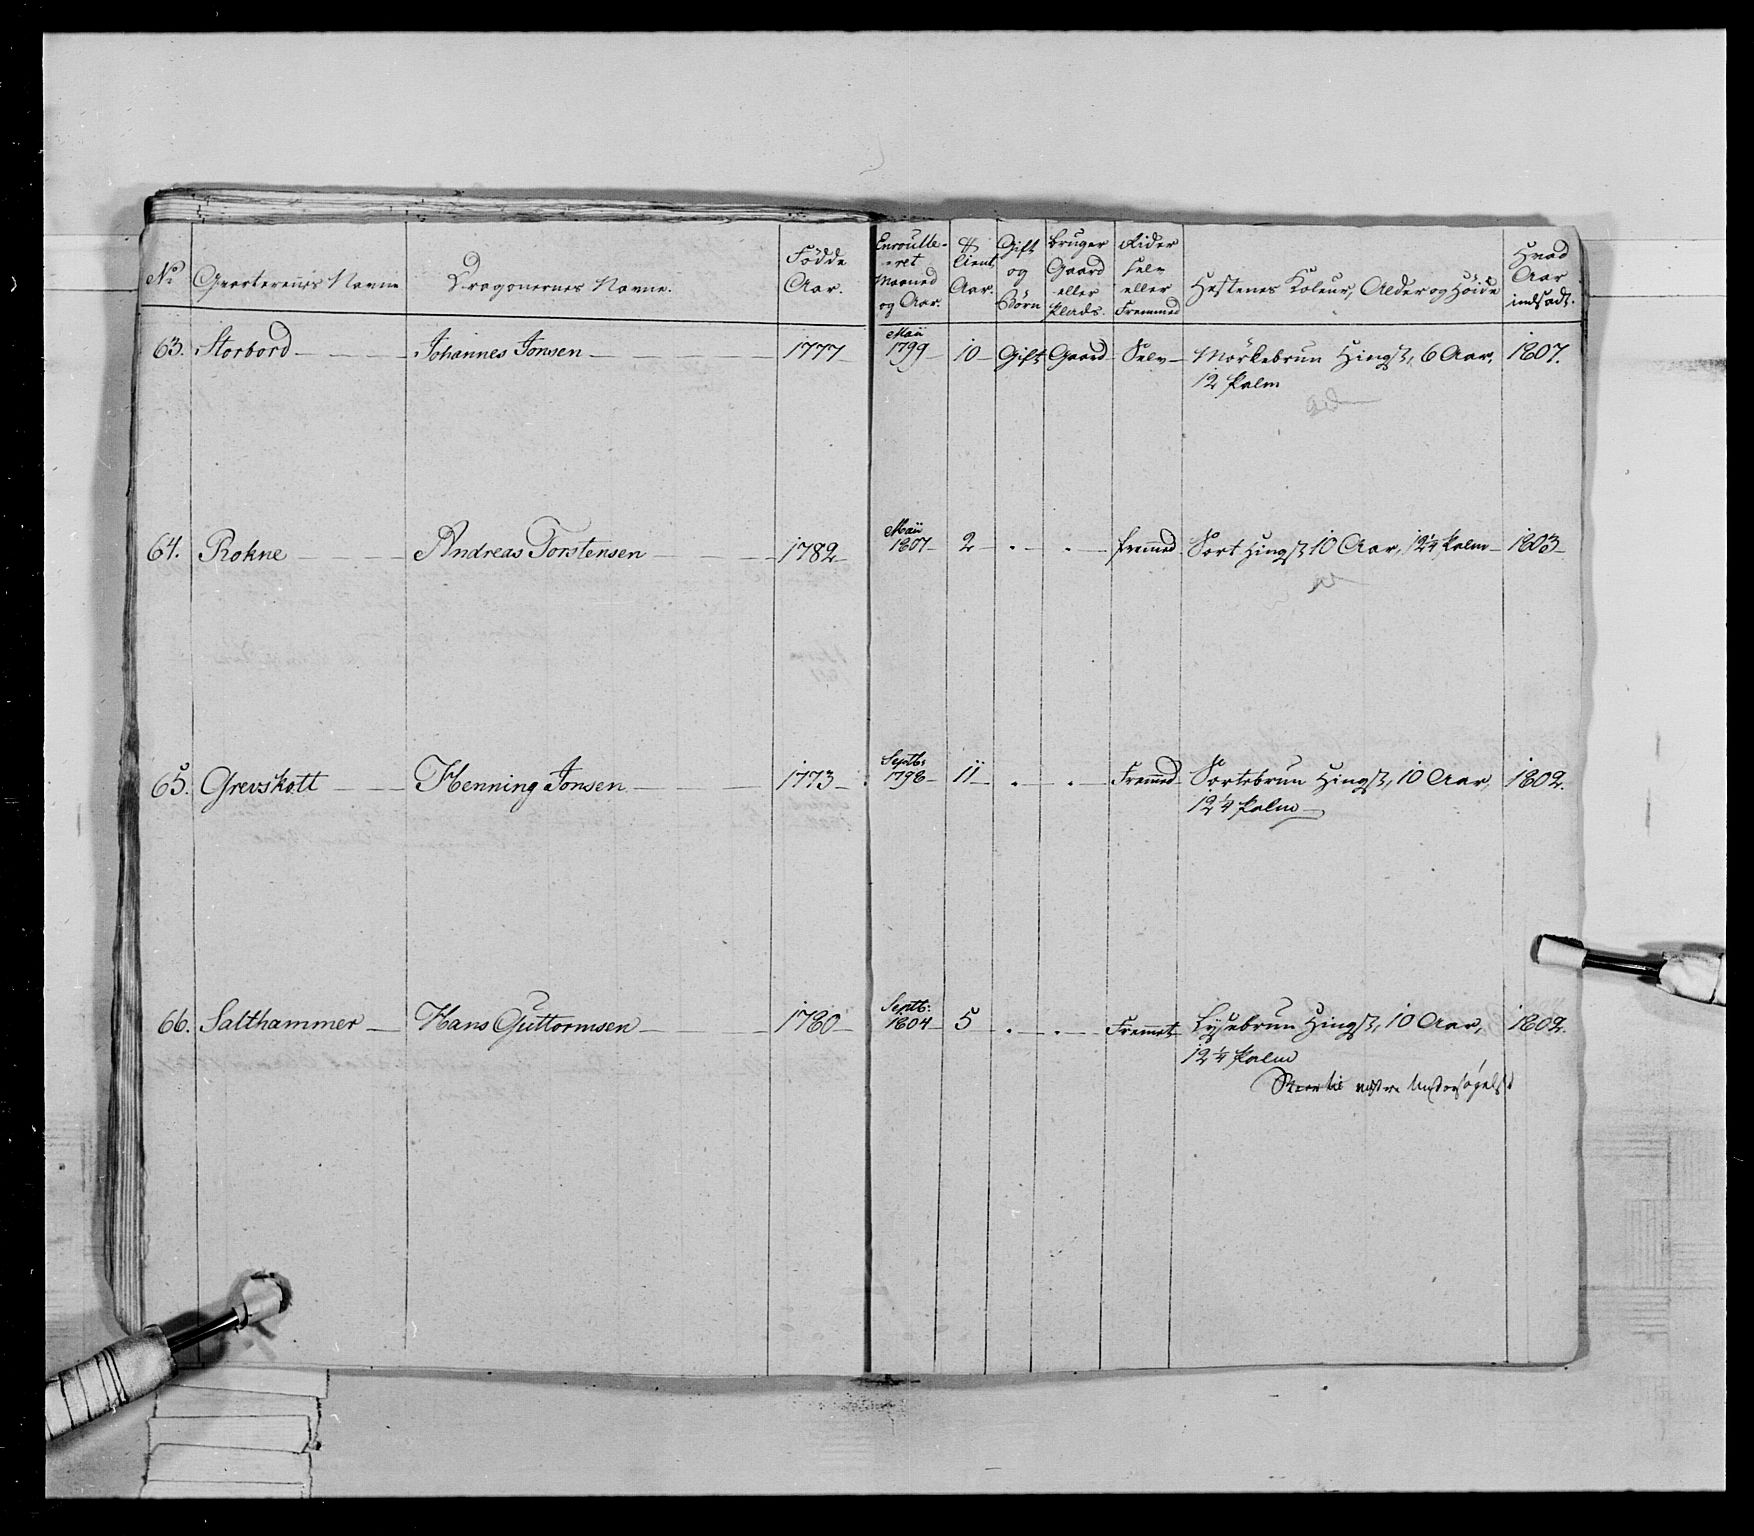 No Qvarterenis Navne Dragonernes Navne. Födde Aar. Enroulle-eret Maaned og Aar. Tient Aar. Gift og Börn Bruger Gaard eller Plads. Rider selv eller Fremmed Hestenes Koleur, Alder og Höide Hvad Aar indsadt.
63. Storbord Johannes Jonsen 1777 Maii 1799 10 Gift Gaard Selv Mörkebrun Hingst, 6 Aar, 1807.
12 Palm
64. Rokne Andreas Torstensen 1782 Maii 1807 2 . . fremed Sort Hingst 10 Aar, 12¼ Palm 1803
65. Grevskott Henning Jonsen 1773 Septb: 1798 11 . . Fremed Sortebrun Hingst, 10 Aar, 1802.
12¼ Palm
66. Salthammer Hans Guttormsen 1780 Septb: 1804 5 . . Fremet Lysebrun Hingst, 10 Aar, 1802.
12¼ Palm
til næste Undersøgelse